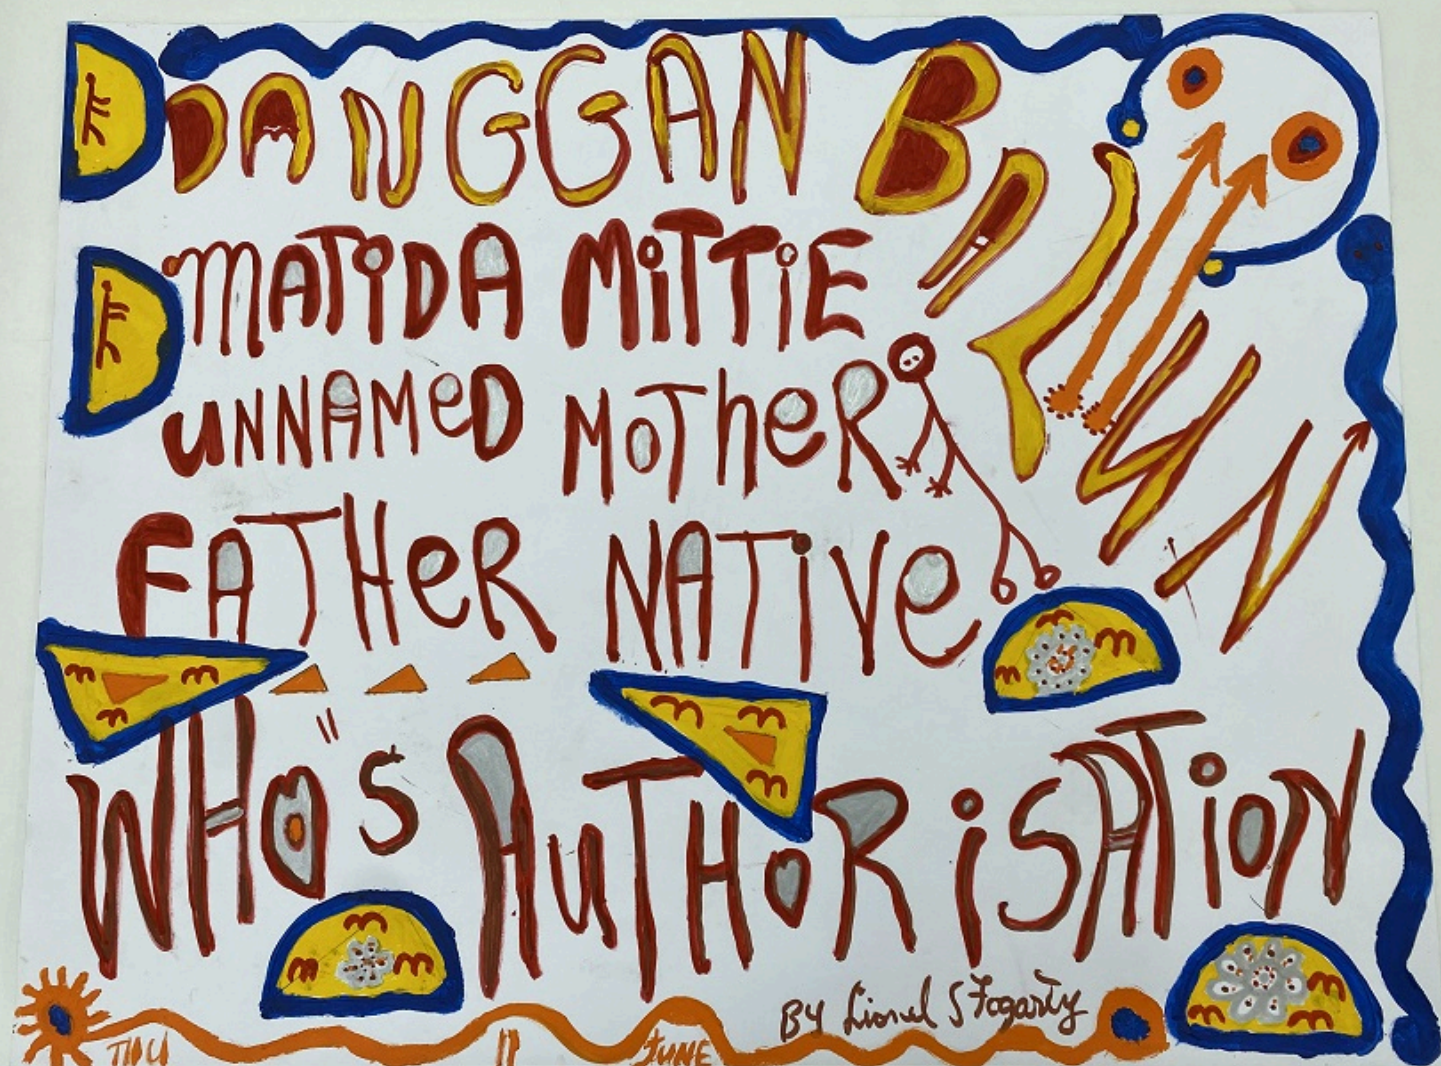 DANGGAN BALUN
MATiDA MiTTiE
UNNAMeD MOTheR
FATHeR NATiVe
WHO"S AuTHORiSATioN
BY Lionel S Fogarty
THU 11 JUNE